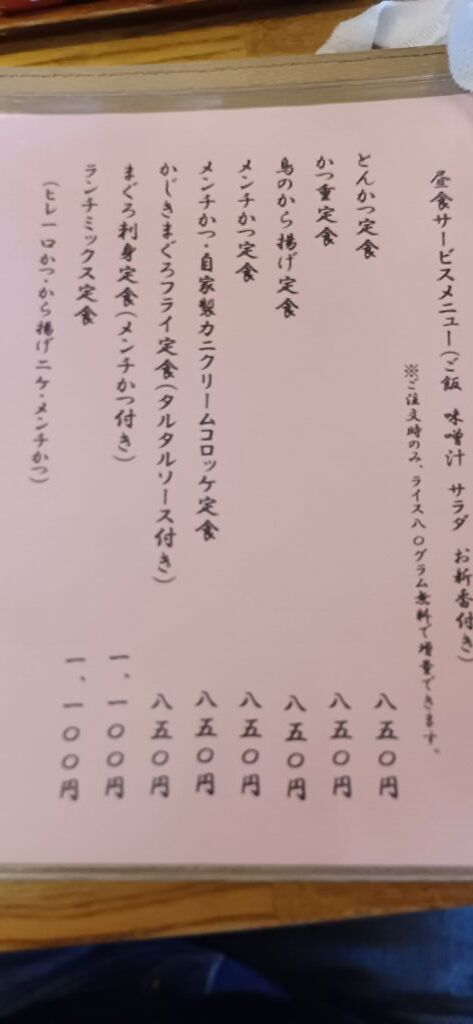 昼食サービスメニュー(ご飯 味噌汁 サラダ お新香付き)
※ご注文時のみ、ライス八〇グラム無料で増量できます。
とんかつ定食 八五〇円
かつ重定食 八五〇円
鳥のから揚げ定食 八五〇円
メンチかつ定食 八五〇円
メンチかつ・自家製カニクリームコロッケ定食 八五〇円
かじきまぐろフライ定食(タルタルソース付き) 八五〇円
まぐろ刺身定食(メンチかつ付き) 一、一〇〇円
ランチミックス定食 一、一〇〇円
(ヒレ一口かつ・から揚げ二ケ・メンチかつ)